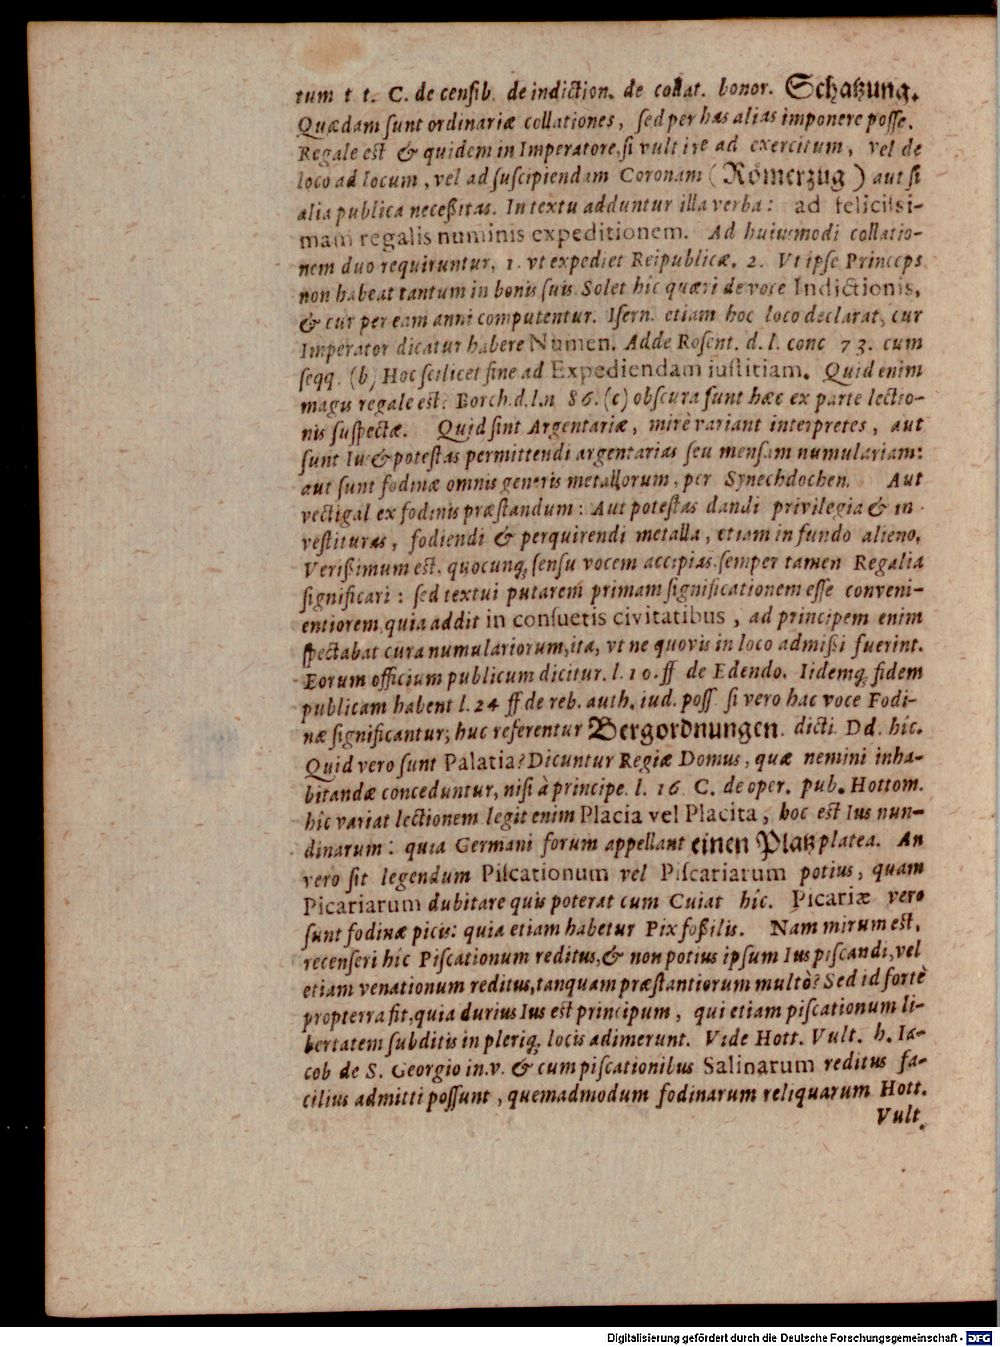 tum t t. C. de censib. de indiction. de collat. bonor. Schatzung.
Quædam sunt ordinariæ collationes, sed per has alias imponere posse.
Regale est & quidem in Imperatore, si vult ire ad exercitum, vel de
loco ad locum, vel ad suscipiendam Coronam (Römerzug) aut si
alia publica neceßitas. In textu adduntur illa verba: ad felicissi-
mam regalis numinis expeditionem. Ad huiusmodi collatio-
nem duo requiruntur, 1. vt expediet Reipublicæ. 2. Vt ipse Princeps
non habeat tantum in bonis suis. Solet hic quæri de voce Indictionis,
& cur per eam anni computentur. Isern. etiam hoc loco declarat, cur
Imperator dicatur habere Numen. Adde Rosent. d. l. conc 73. cum
seqq. (b) Hoc scilicet fine ad Expediendam iustitiam. Quid enim
magis regale est? Borch. d. l. n 86. (c) obscura sunt hæc ex parte lectio-
nis suspectæ. Quid sint Argentariæ, mirè variant interpretes, aut
sunt Ius & potestas permittendi argentarias seu mensam numulariam:
aut sunt fodinæ omnis generis metallorum, per Synechdochen. Aut
vectigal ex fodinis præstandum: Aut potestas dandi privilegia & in-
vestituras, fodiendi & perquirendi metalla, etiam in fundo alieno.
Verißimum est, quocunq; sensu vocem accipias, semper tamen Regalia
significari: sed textui putarem primam significationem esse conveni-
entiorem, quia addit in consuetis civitatibus, ad principem enim
spectabat cura numulariorum, ita, vt ne quovis in loco admißi fuerint.
Eorum officium publicum dicitur. l. 10. ff de Edendo. Iidemq; fidem
publicam habent l. 24 ff de reb. auth. iud. poss. si vero hac voce Fodi-
næ significantur; huc referentur Bergordnungen. dicti. Dd. hîc.
Quid vero sunt Palatia? Dicuntur Regiæ Domus, quæ nemini inha-
bitandæ conceduntur, nisi à principe. l. 16 C. de oper. pub. Hottom.
hîc variat lectionem legit enim Placia vel Placita, hoc est Ius nun-
dinarum: quia Germani forum appellant einen Platz platea. An
vero sit legendum Piscationum vel Piscariarum potius, quam
Picariarum dubitare quis poterat cum Cuiat hîc. Picariæ vero
sunt fodinæ picis: quia etiam habetur Pix foßilis. Nam mirum est,
recenseri hic Piscationum reditus, & non potius ipsum Ius piscandi, vel
etiam venationum reditus, tanquam præstantiorum multò? Sed id fortè
propterra fit, quia durius Ius est principum, qui etiam piscationum li-
bertatem subditis in pleriq; locis adimerunt. Vide Hott. Vult. h. Ia-
cob de S. Georgio in. v. & cum piscationibus Salinarum reditus fa-
cilius admitti possunt, quemadmodum fodinarum reliquarum Hott.
Vult.
Digitalisierung gefördert durch die Deutsche Forschungsgemeinschaft - DFG